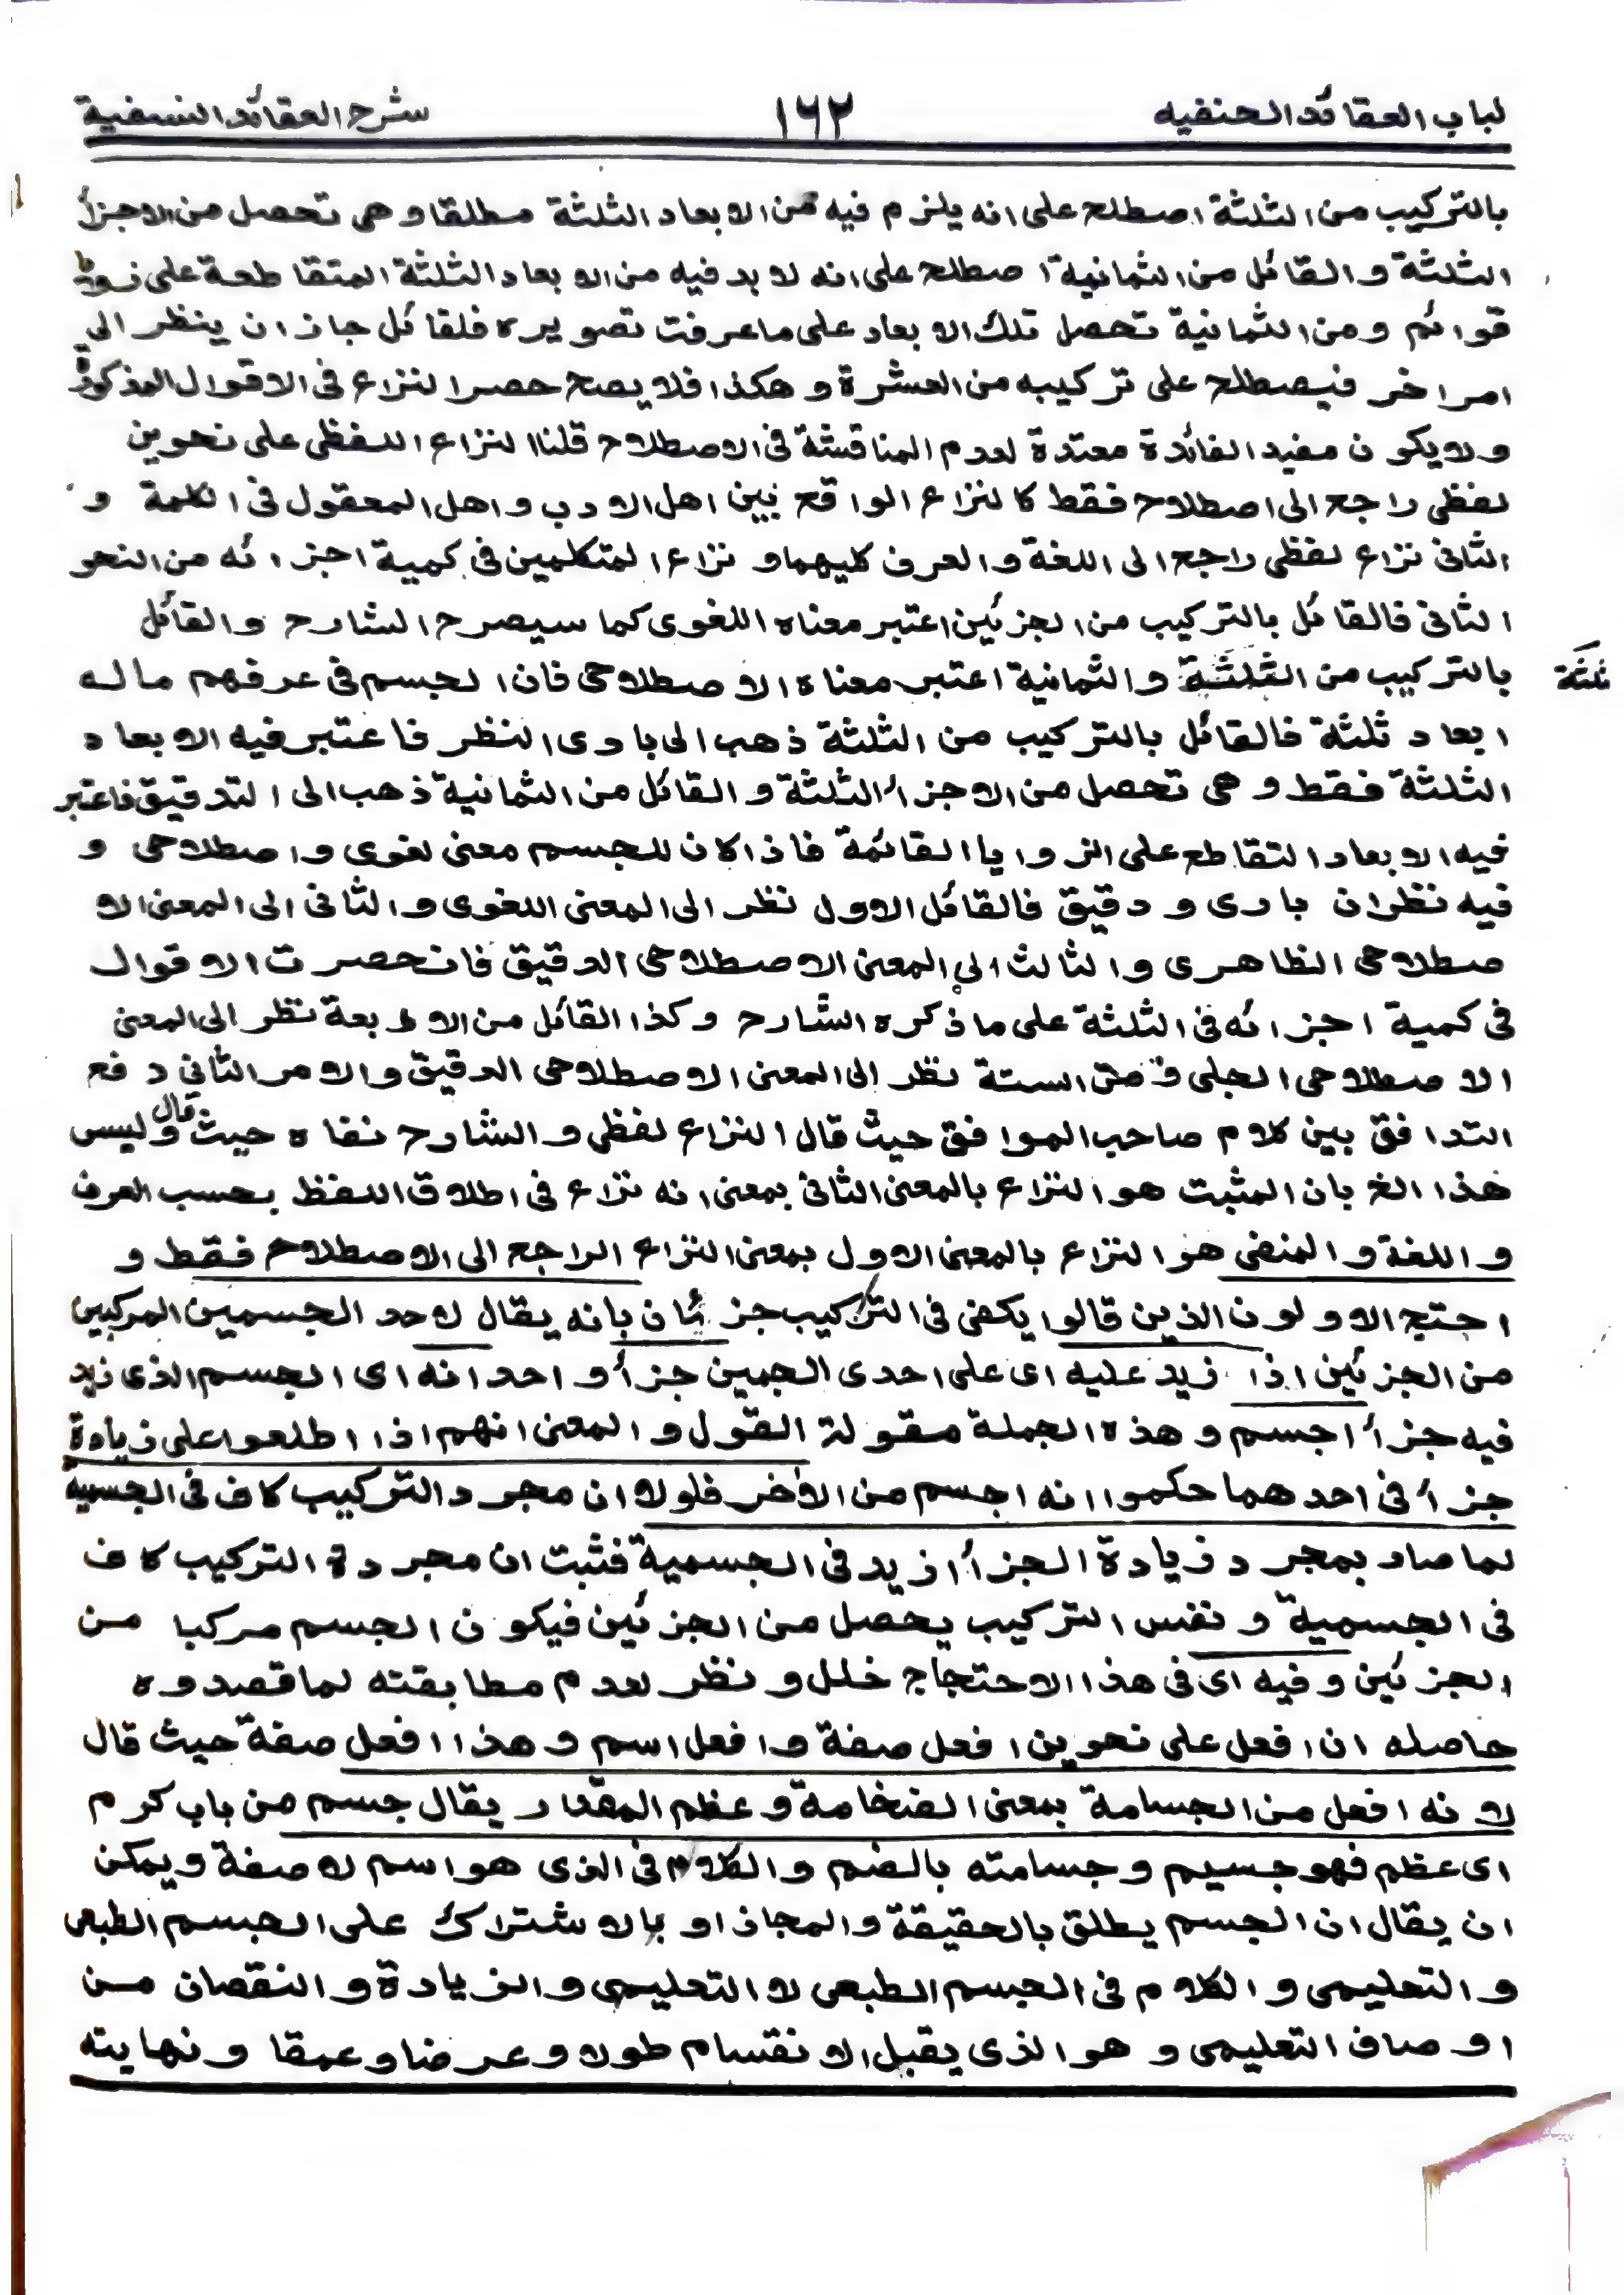 لباب العقائد الحنفيه ١٦٢ شرح العقائد النسفية
بالتركيب من الثلثة اصطلح على انه يلزم فيه من الابعاد الثلثة مطلقا و هى تحصل من الاجزأ
الثلثة و القائل من الثمانية اصطلح على انه لا بد فيه من الابعاد الثلثة المتقاطعة على زوايا
قوائم و من الثمانية تحصل تلك الابعاد على ما عرفت تصويره فلقائل جاز ان ينظر الى
امر اخر فيصطلح على تركيبه من العشرة و هكذا فلا يصح حصر النزاع فى الاقوال المذكورة
و لا يكون مفيد الفائدة معتدة لعدم المناقشة فى الاصطلاح قلنا النزاع اللفظى على نحوين
لفظى راجع الى اصطلاح فقط كالنزاع الواقع بين اهل الادب و اهل المعقول فى الكلمة و
الثانى نزاع لفظى راجع الى اللغة و العرف كليهما و نزاع المتكلمين فى كمية اجزائه من النحو
الثانى فالقائل بالتركيب من الجزئين اعتبر معناه اللغوى كما سيصرح الشارح و القائل
بالتركيب من الثلثة و الثمانية اعتبر معناه الاصطلاحى فان الجسم فى عرفهم ما له
ثلثة
ابعاد ثلثة فالقائل بالتركيب من الثلثة ذهب الى بادى النظر فاعتبر فيه الابعاد
الثلثة فقط و هى تحصل من الاجزأ الثلثة و القائل من الثمانية ذهب الى التدقيق فاعتبر
فيه الابعاد التقاطع على الزوايا القائمة فاذا كان للجسم معنى لغوى و اصطلاحى و
فيه نظران بادى و دقيق فالقائل الاول نظر الى المعنى اللغوى و الثانى الى المعنى الا
صطلاحى الظاهرى و الثالث الى المعنى الاصطلاحى الدقيق فانحصرت الاقوال
فى كمية اجزائه فى الثلثة على ما ذكره الشارح و كذا القائل من الاربعة نظر الى المعنى
الاصطلاحى الجلى و من الستة نظر الى المعنى الاصطلاحى الدقيق و الامر الثانى دفع
التدافق بين كلام صاحب الموافق حيث قال النزاع لفظى و الشارح نفاه حيث قال و ليس
هذا الخ بان المثبت هو النزاع بالمعنى الثانى بمعنى انه نزاع فى اطلاق اللفظ بحسب العرف
و اللغة و المنفى هو النزاع بالمعنى الاول بمعنى النزاع الراجع الى الاصطلاح فقط و
احتج الاولون الذين قالوا يكفى فى التركيب جزئان بانه يقال لاحد الجسمين المركبين
من الجزئين اذا زيد عليه اى على احدى الجمين جزأ واحد انه اى الجسم الذى زيد
فيه جزأ اجسم و هذه الجملة مقولة القول و المعنى انهم اذا اطلعوا على زيادة
جزأ فى احدهما حكموا انه اجسم من الأخر فلولا ان مجرد التركيب كاف فى الجسمية
لما صار بمجرد زيادة الجزأ ازيد فى الجسمية فثبت ان مجردة التركيب كاف
فى الجسمية و نفس التركيب يحصل من الجزئين فيكون الجسم مركبا من
الجزئين و فيه اى فى هذا الاحتجاج خلل و نظر لعدم مطابقته لما قصدوه
حاصله ان افعل على نحوين افعل صفة و افعل اسم و هذا افعل صفة حيث قال
لانه افعل من الجسامة بمعنى الضخامة و عظم المقدار يقال جسم من باب كرم
اى عظم فهو جسيم و جسامته بالضم و الكلام فى الذى هو اسم لا صفة و يمكن
ان يقال ان الجسم يطلق بالحقيقة و المجاز او بالاشتراك على الجسم الطبعى
و التعليمى و الكلام فى الجسم الطبعى لا التعليمى و الزيادة و النقصان من
اوصاف التعليمى و هو الذى يقبل الانقسام طولا و عرضا و عمقا و نهايته